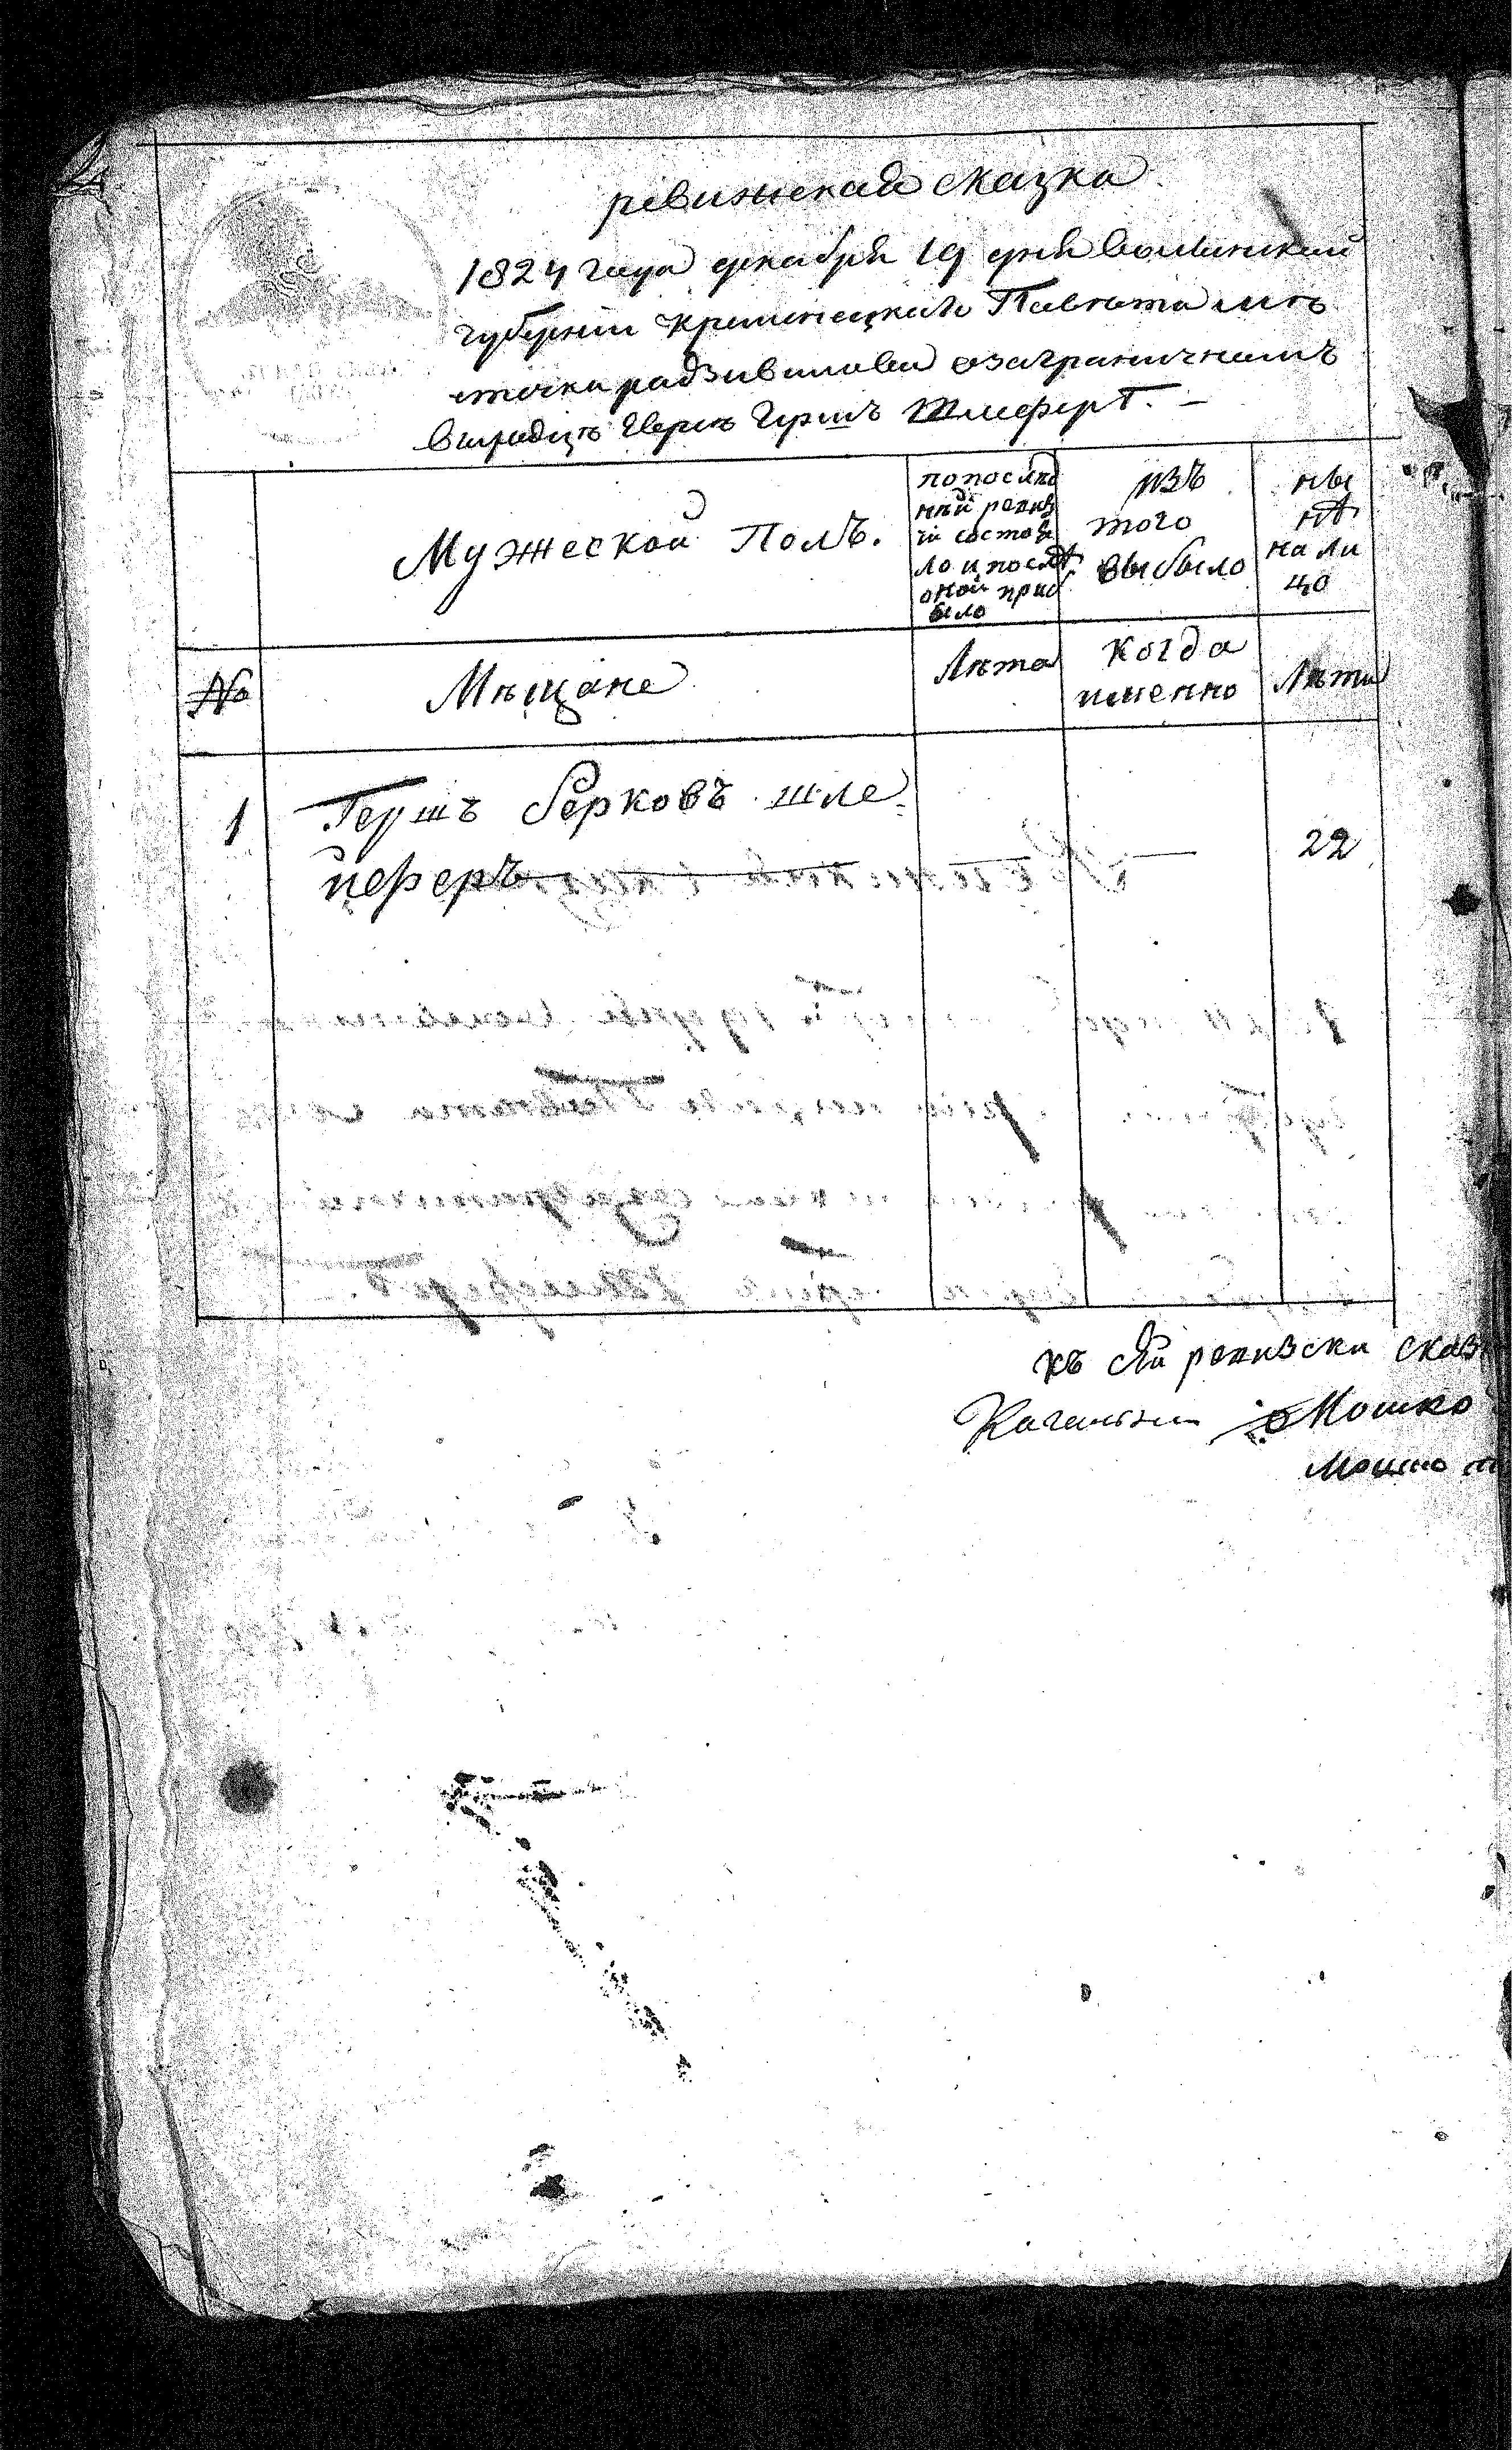 ревижская сказка
1824 года декабря 19 дня волинской
губернии кременецкаго Павѣта мѣ
стечка радзивилова озаграничномъ
Герш Шлеферъ. –
Мужеской Полъ.
по послѣд
ней ревиз
ій состоя
ло и послѣ
оной при
было
изъ
того
выбыло
ны
нѣ
на ли
цо
№
Мѣщане
Лѣта
когда
именно
Лѣта
1
Гершъ Берковъ шле
йферъ
22
къ сей ревизски сказ
Кагальни Мошко
Мошко